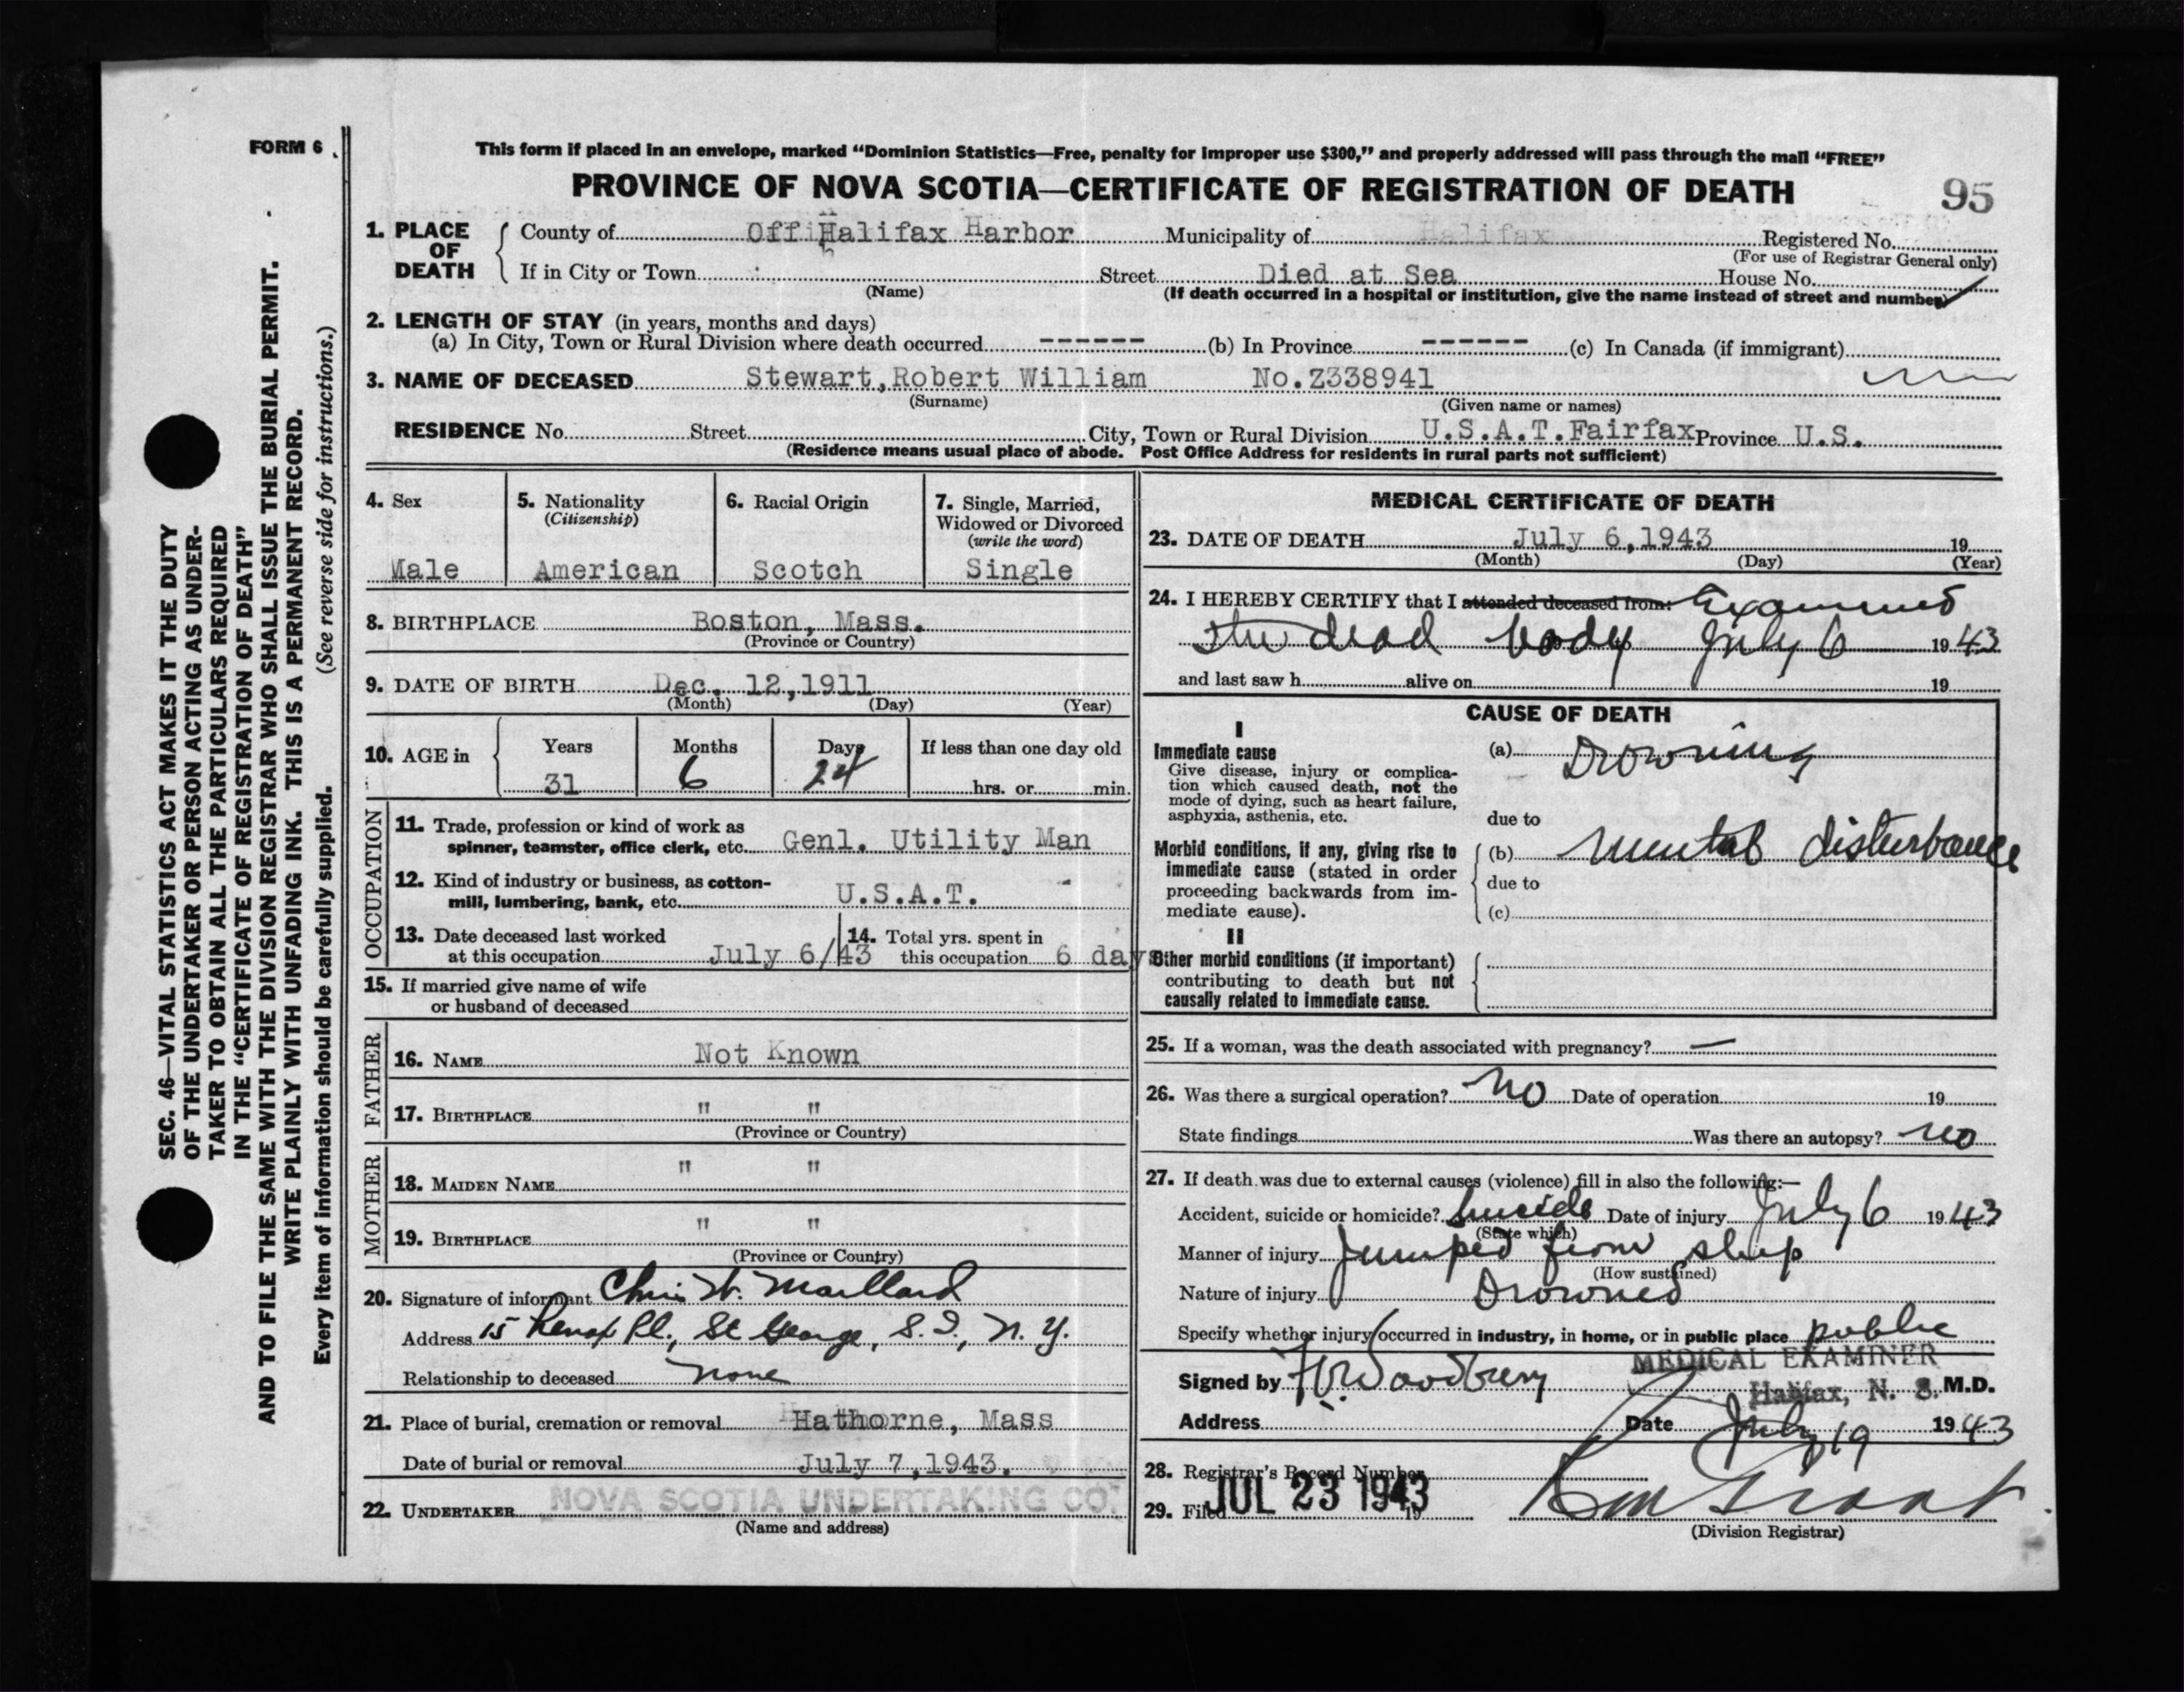 FORM 6
This form if placed in an envelope, marked “Dominion Statistics—Free, penalty for improper use $300,” and properly addressed will pass through the mail “FREE”
PROVINCE OF NOVA SCOTIA—CERTIFICATE OF REGISTRATION OF DEATH
95
1. PLACE OF DEATH
County of Off Halifax Harbor Municipality of Halifax Registered No.
(For use of Registrar General only)
If in City or Town Street Died at Sea House No.
(Name) (If death occurred in a hospital or institution, give the name instead of street and number)
2. LENGTH OF STAY (in years, months and days)
(a) In City, Town or Rural Division where death occurred ------ (b) In Province ------ (c) In Canada (if immigrant)
3. NAME OF DECEASED Stewart, Robert William No. Z338941
(Surname) (Given name or names)
RESIDENCE No. Street City, Town or Rural Division U.S.A.T. Fairfax Province U.S.
(Residence means usual place of abode. Post Office Address for residents in rural parts not sufficient)
4. Sex
Male
5. Nationality
(Citizenship)
American
6. Racial Origin
Scotch
7. Single, Married,
Widowed or Divorced
(write the word)
Single
8. BIRTHPLACE Boston, Mass.
(Province or Country)
9. DATE OF BIRTH Dec. 12, 1911
(Month) (Day) (Year)
10. AGE in
Years Months Days If less than one day old
31 6 24 hrs. or min.
OCCUPATION
11. Trade, profession or kind of work as
spinner, teamster, office clerk, etc. Genl. Utility Man
12. Kind of industry or business, as cotton-
mill, lumbering, bank, etc. U.S.A.T.
13. Date deceased last worked
at this occupation July 6/43
14. Total yrs. spent in
this occupation 6 days
15. If married give name of wife
or husband of deceased
FATHER
16. NAME Not Known
17. BIRTHPLACE " "
(Province or Country)
MOTHER
18. MAIDEN NAME " "
19. BIRTHPLACE " "
(Province or Country)
20. Signature of informant Chris W. Maillard
Address 15 Lenox Pl., St George, S.I., N.Y.
Relationship to deceased none
21. Place of burial, cremation or removal Hathorne, Mass
Date of burial or removal July 7, 1943.
22. UNDERTAKER NOVA SCOTIA UNDERTAKING CO.
(Name and address)
MEDICAL CERTIFICATE OF DEATH
23. DATE OF DEATH July 6, 1943 19
(Month) (Day) (Year)
24. I HEREBY CERTIFY that I attended deceased from: Examined
the dead body July 6 1943
and last saw h alive on 19
CAUSE OF DEATH
I
Immediate cause
Give disease, injury or complica-
tion which caused death, not the
mode of dying, such as heart failure,
asphyxia, asthenia, etc.
(a) Drowning
due to
Morbid conditions, if any, giving rise to
immediate cause (stated in order
proceeding backwards from im-
mediate cause).
(b) mental disturbance
due to
(c)
II
Other morbid conditions (if important)
contributing to death but not
causally related to immediate cause.
25. If a woman, was the death associated with pregnancy? —
26. Was there a surgical operation? No Date of operation 19
State findings Was there an autopsy? no
27. If death was due to external causes (violence) fill in also the following:—
Accident, suicide or homicide? Suicide Date of injury July 6 1943
(State which)
Manner of injury Jumped from ship
(How sustained)
Nature of injury Drowned
Specify whether injury occurred in industry, in home, or in public place public
MEDICAL EXAMINER
Signed by Woodbury Halifax, N. S. M.D.
Address Date July 19 1943
28. Registrar's Record Number
29. Filed JUL 23 1943 19
(Division Registrar)
SEC. 46—VITAL STATISTICS ACT MAKES IT THE DUTY
OF THE UNDERTAKER OR PERSON ACTING AS UNDER-
TAKER TO OBTAIN ALL THE PARTICULARS REQUIRED
IN THE “CERTIFICATE OF REGISTRATION OF DEATH”
AND TO FILE THE SAME WITH THE DIVISION REGISTRAR WHO SHALL ISSUE THE BURIAL PERMIT.
WRITE PLAINLY WITH UNFADING INK. THIS IS A PERMANENT RECORD.
Every item of information should be carefully supplied. (See reverse side for instructions.)